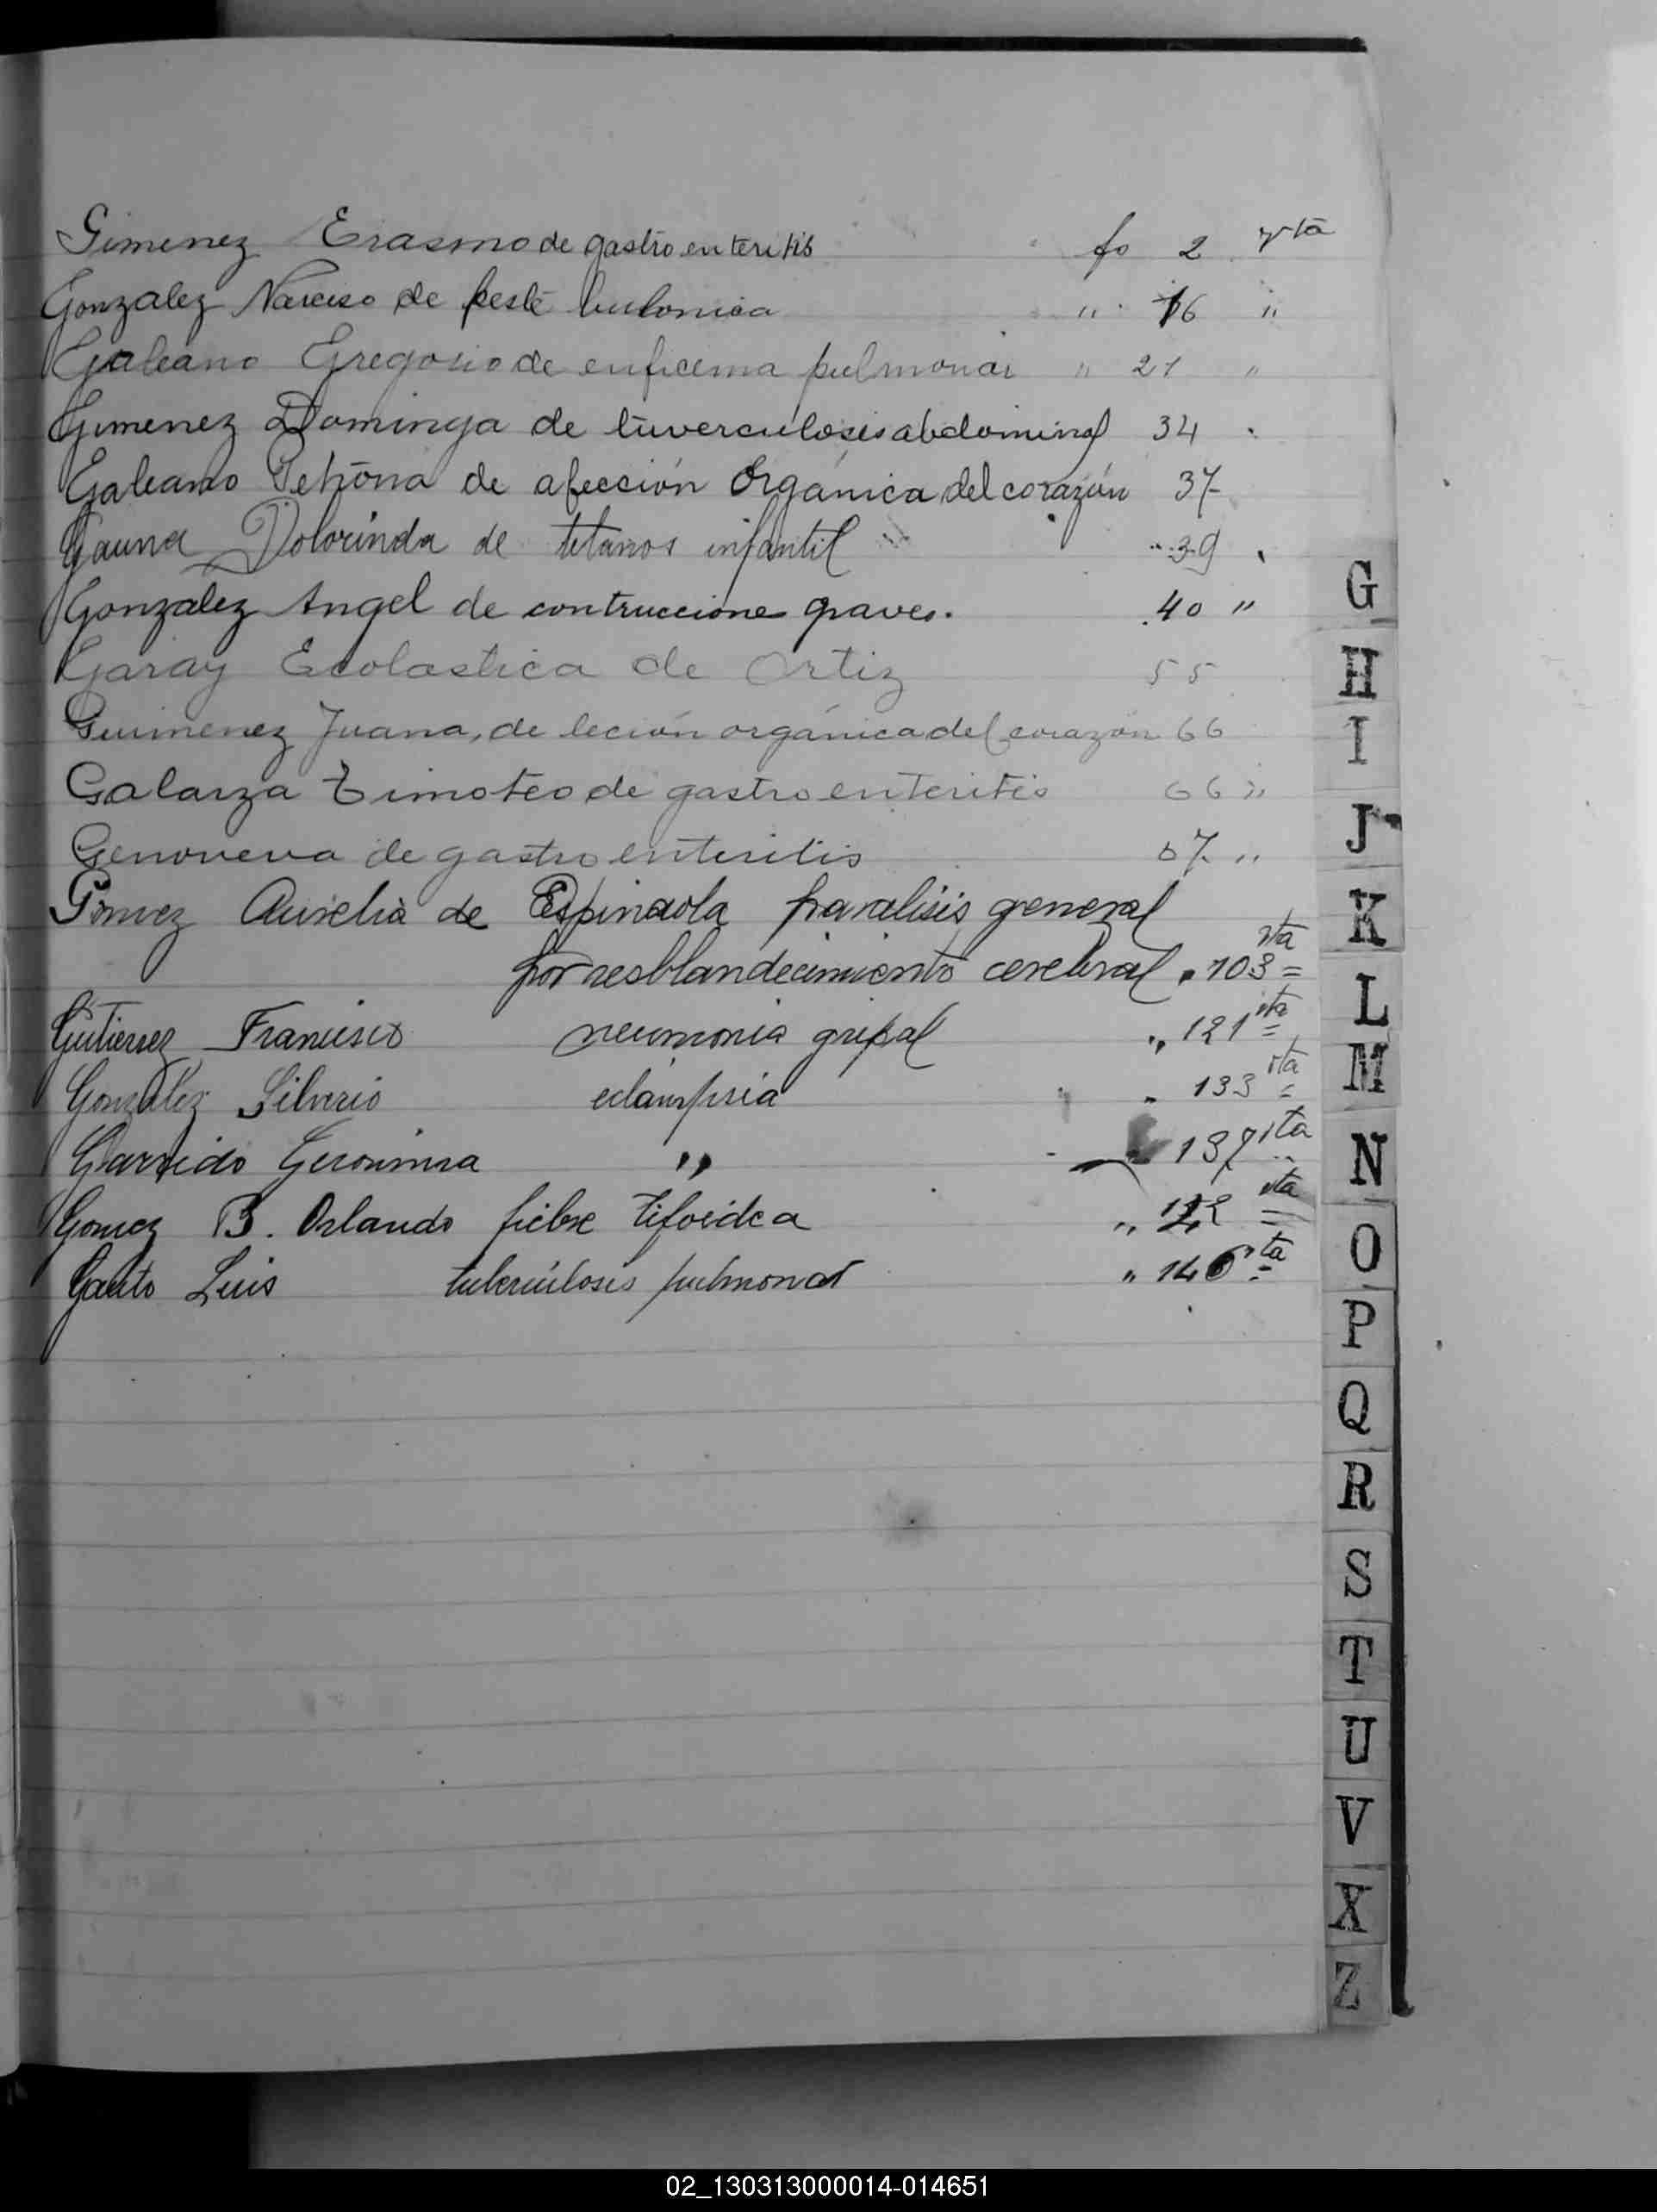 Gimenez Erasmo de gastro enteritis fo 2 vta
Gonzalez Narciso de peste bubonica " 16 "
Galeano Gregorio de enficema pulmonar " 21 "
Gimenez Dominga de tuverculosis abdominal 34
Galeano Petrona de afección Orgánica del corazón 37
Gauna Dolorinda de tetanos infantil 39
Gonzalez Angel de contruccione graves. 40 "
Garay Ecolastica de Ortiz 55
Guimenez Juana, de leción orgánica del corazón 66
Galarza Timoteo de gastro enteritis 66 "
Genoveva de gastro enteritis 67 "
Gomez Aurelia de Espinaola paralisis general
por resblandecimiento cerebral " 103 vta =
Gutierrez Francisco neumonia gripal " 121 vta =
González Silverio eclampsia " 133 vta =
Garrido Geronima " 137 vta
Gomez B. Orlando fiebre tifoidea " vta =
Gauto Luis tuberculosis pulmonar " 146 vta =
G
H
I
J
K
L
M
N
O
P
Q
R
S
T
U
V
X
Z
02_130313000014-014651